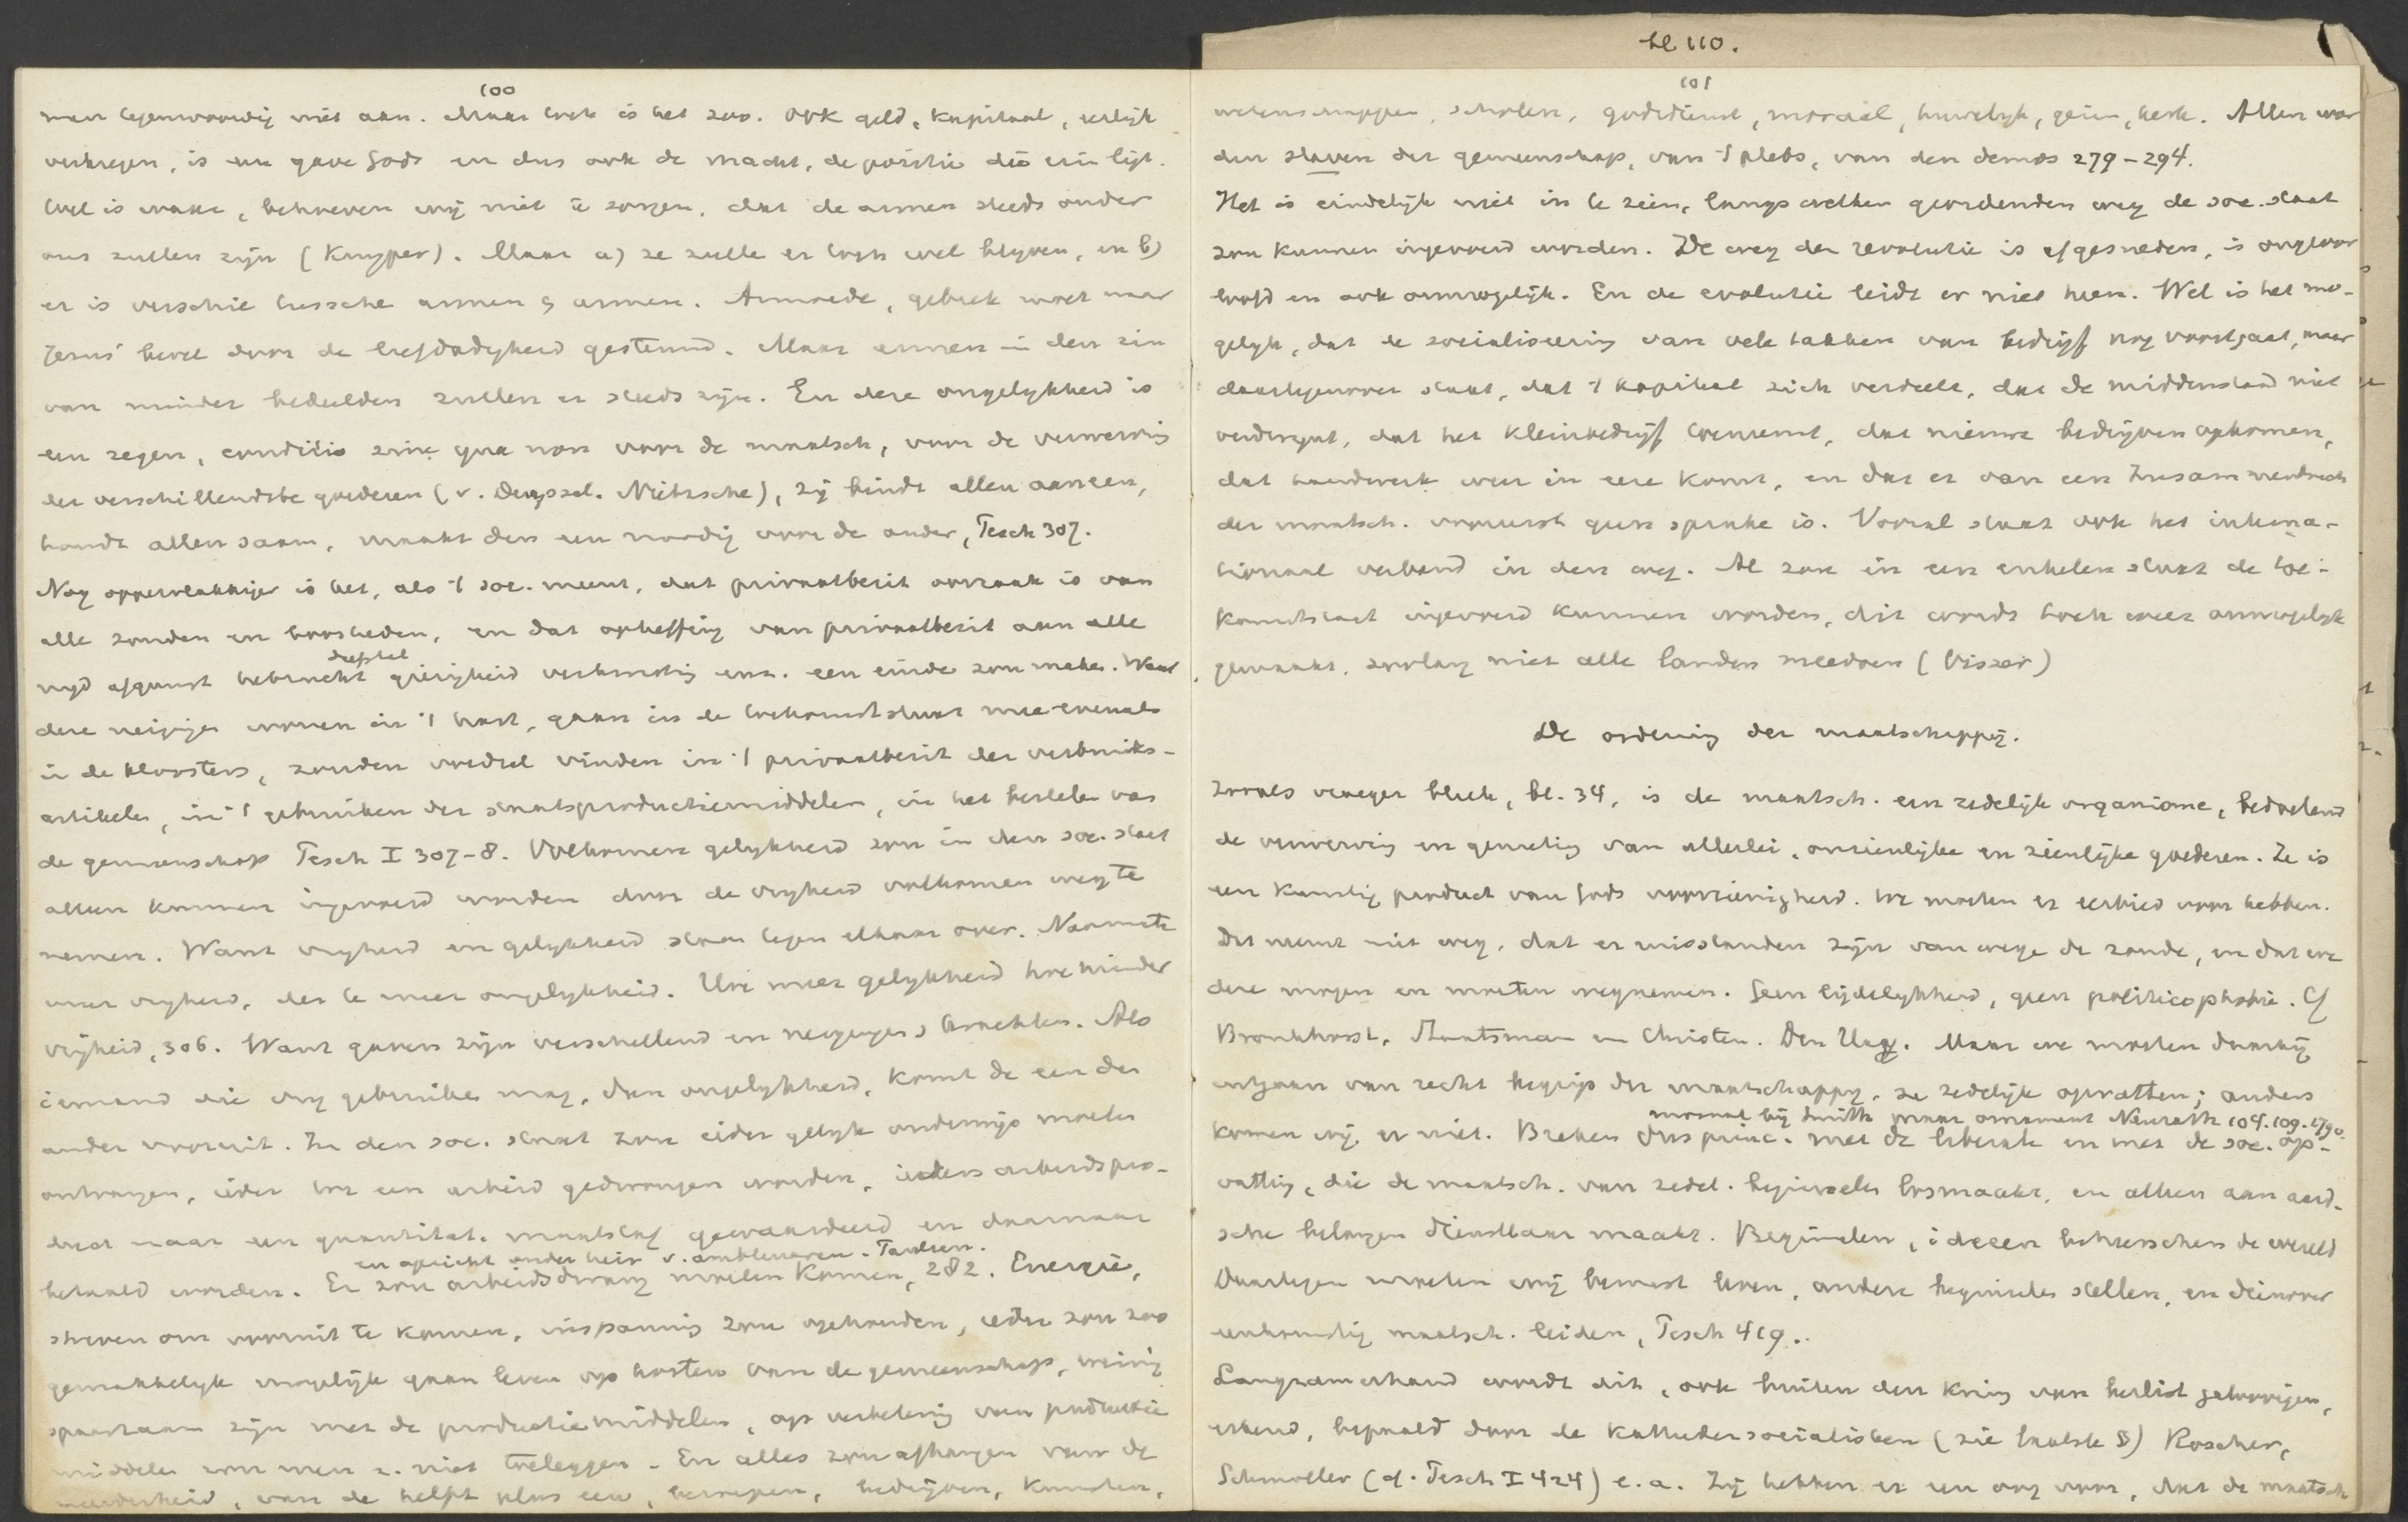 100
men tegenwoordig niet aan. Maar toch is het zoo. Ook geld, kapitaal, eerlijk
verkregen, is een gave Gods en dus ook de macht, de positie die
Wel is waar, behoeven wij niet te zorgen, dat de armen steeds onder
ons zullen zijn (Kuyper). Maar a) ze zulle er toch wel blijven, en b)
er is verschil tussche armen & armen. Armoede, gebrek moet naar
Jezus' bevel door de liefdadigheid gestemd. Maar armen in den zin
van minder bedeelden zullen er steeds zijn. En deze ongelijkheid is
een zegen, conditio sine qua non voor de maatsch, voor de verwerving
der verschillendste goederen (v. Nietzsche), zij bindt allen aaneen,
houdt allen saam, maakt den een noodig voor de ander, Pesch 307.
Nog oppervlakkiger is het, als 't soc. meent, dat privaatbezit oorzaak is van
alle zonden en boosheden, en dat opheffing van privaatbezit aan alle
diefstal
nijd afgunst hebzucht gierigheid verkwisting enz. een einde zou maken. Want
deze neigingen wonen in 't hart, gaan in de toekomststaat mee evenals
in de kloosters, zouden voedsel vinden in 't privaatbezit der verbruiks-
artikelen, in 't gebruiken der staatsproductiemiddelen, in het van
de gemeenschap Pesch I 307-8. Volkomen gelijkheid zou in den soc. staat
alleen kunnen ingevoerd worden door de vrijheid volkomen weg te
nemen. Want vrijheid en gelijkheid staan tegen elkaar over. Naarmate
meer vrijheid, des te meer ongelijkheid. Hoe meer gelijkheid hoe minder
vrijheid, 306. Want gaven zijn verschillend en neigingen & krachten. Als
iemand die vrij gebruiken mag, dan ongelijkheid, komt de een den
ander vooruit. In den soc. staat zou ieder gelijk onderwijs moeten
ontvangen, ieder tot een arbeid gedwongen worden, ieders arbeidspro-
duct naar een quantitat. maatstaf gewaardeerd en daarnaar
en opzicht onder heir v. ambtenaren.
betaald worden. Er zou arbeidsdwang moeten komen, 282. Energie,
streven om vooruit te komen, inspanning zou ophouden, ieder zou zoo
gemakkelijk mogelijk gaan leven op kosten van de gemeenschap, weinig
spaarzaam zijn met de productiemiddelen, op verbetering van productie
middelen zou men z. niet toeleggen. En alles zou afhangen van de
meerderheid, van de helft plus een, beroepen, bedrijven, kunsten,
bl 110.
101
wetenschappen, scholen, godsdienst, moraal, huwelijk, gezin, kerk. Allen wor
den slaven der gemeenschap, van 't plebs, van den demos 279-294.
Het is eindelijk niet in te zien, langs welken geordenden weg de soc. staat
zou kunnen ingevoerd worden. De weg der revolutie is afgesneden, is ongeoor
loofd en ook onmogelijk. En de evolutie leidt er niet heen. Wel is het mo-
gelijk, dat de socialiseering van vele takken van bedrijf nog voortgaat, maar
daartegenover staat, dat 't kapitaal zich verdeelt, dat de middenstand niet
verdwijnt, dat het kleinbedrijf toeneemt, dat nieuwe bedrijven opkomen,
dat handwerk weer in eere komt, en dat er van een Zusammenbruch
der maatsch. vooreerst geen sprake is. Vooral staat ook het interna-
tionaal verband in den weg. Al zou in een enkelen staat de toe-
komststaat ingevoerd kunnen worden, dit wordt toch weer onmogelijk
gemaakt, zoolang niet alle landen meedoen (Visser)
De ordening der maatschappij.
Zooals vroeger bleek, bl. 34, is de maatsch. een zedelijk organisme, bedoelend
de verwerving en genieting van allerlei, onzienlijke en zienlijke goederen. Ze is
een kunstig product van Gods voorzienigheid. We moeten er eerbied voor hebben.
Dit neemt niet weg, dat er misstanden zijn vanwege de zonde, en dat we
deze mogen en moeten wegnemen. Geen lijdelijkheid, geen politicophobie. Cf
Bronkhorst, Staatsman en Christen. Den Haag. Maar we moeten daarbij
uitgaan van recht begrip der maatschappij, ze zedelijk opvatten; anders
moraal bij Smith maar ornament Neurath 104. 109. 179.
komen wij er niet. Breken dus princ. met de liberale en met de soc. op-
vatting, die de maatsch. van zedel. beginselen losmaakt, en alleen aan aard-
sche belangen dienstbaar maakt. Beginselen, ideeen beheerschen de wereld
Daartegen moeten wij bewust leven, andere beginselen stellen, en daarover
eenstemmig maatsch. leiden, Pesch 419..
Langzamerhand wordt dit, ook buiten den kring van beslist geloovigen,
erkend, bepaald door de Kathedersocialisten (zie laatste §) Roscher,
Schmoller (cf. Pesch I 424) e.a. Zij hebben er een oog voor, dat de maatsch